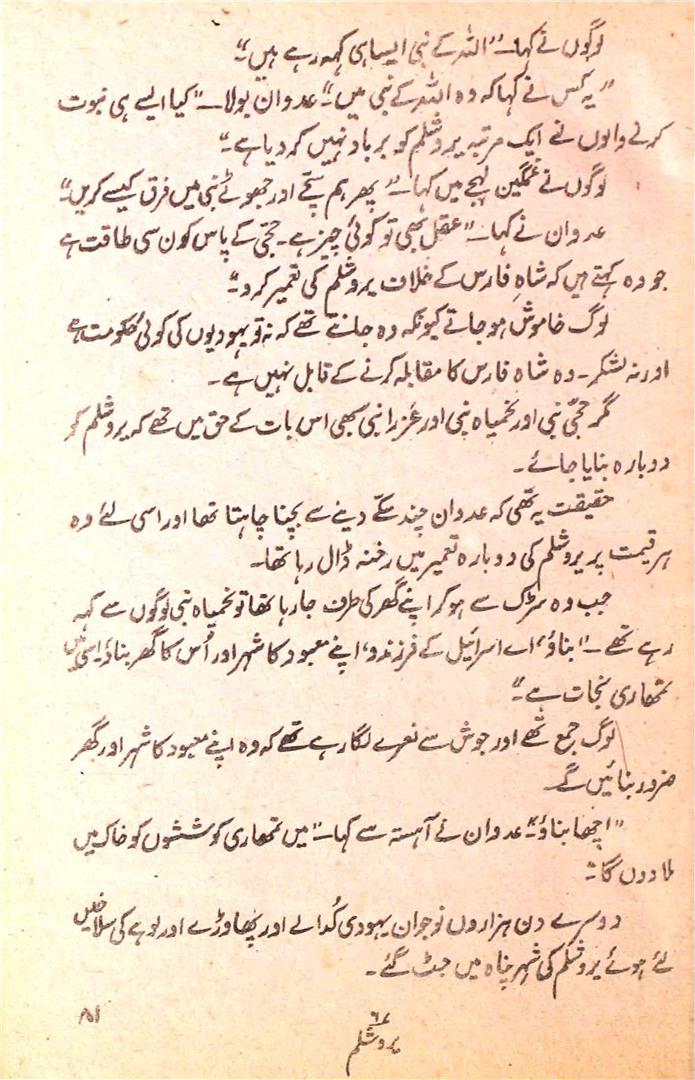 لوگوں نے کہا۔ "اللہ کے نبی ایسا ہی کہہ رہے ہیں۔"
"یہ کس نے کہا کہ وہ اللہ کے نبی ہیں۔" عدوان بولا۔ "کیا ایسے ہی نبوت
کرنے والوں نے ایک مرتبہ یروشلم کو برباد نہیں کر دیا ہے۔"
لوگوں نے غمگین لہجے میں کہا۔ "پھر ہم سچے اور جھوٹے نبی میں فرق کیسے کریں۔"
عدوان نے کہا۔ "عقل بھی تو کوئی چیز ہے۔ حجی کے پاس کون سی طاقت ہے
جو وہ کہتے ہیں کہ شاہِ فارس کے خلاف یروشلم کی تعمیر کر دو۔"
لوگ خاموش ہو جاتے کیونکہ وہ جانتے تھے کہ نہ تو یہودیوں کی کوئی حکومت ہے
اور نہ لشکر۔ وہ شاہ فارس کا مقابلہ کرنے کے قابل نہیں ہے۔
مگر حجی نبی اور نحمیاہ نبی اور عزرا نبی سبھی اس بات کے حق میں تھے کہ یروشلم کو
دوبارہ بنایا جائے۔
حقیقت یہ تھی کہ عدوان چند سکے دینے سے بچنا چاہتا تھا اور اسی لئے وہ
ہر قیمت پر یروشلم کی دوبارہ تعمیر میں رخنہ ڈال رہا تھا۔
جب وہ سڑک سے ہو کر اپنے گھر کی طرف جا رہا تھا تو نحمیاہ نبی لوگوں سے کہہ
رہے تھے۔ "بناؤ، اے اسرائیل کے فرزندو، اپنے معبود کا شہر اور اُس کا گھر بناؤ۔ اسی میں
تمھاری نجات ہے۔"
لوگ جمع تھے اور جوش سے نعرے لگا رہے تھے کہ وہ اپنے معبود کا شہر اور گھر
ضرور بنائیں گے۔
"اچھا بناؤ۔" عدوان نے آہستہ سے کہا۔ "میں تمھاری کوششوں کو خاک میں
ملا دوں گا۔"
دوسرے دن ہزاروں نوجوان یہودی کُدالے اور پھاوڑے اور لوہے کی سلاخیں
لئے ہوئے یروشلم کی شہر پناہ میں جٹ گئے۔
۶۷
یروشلم